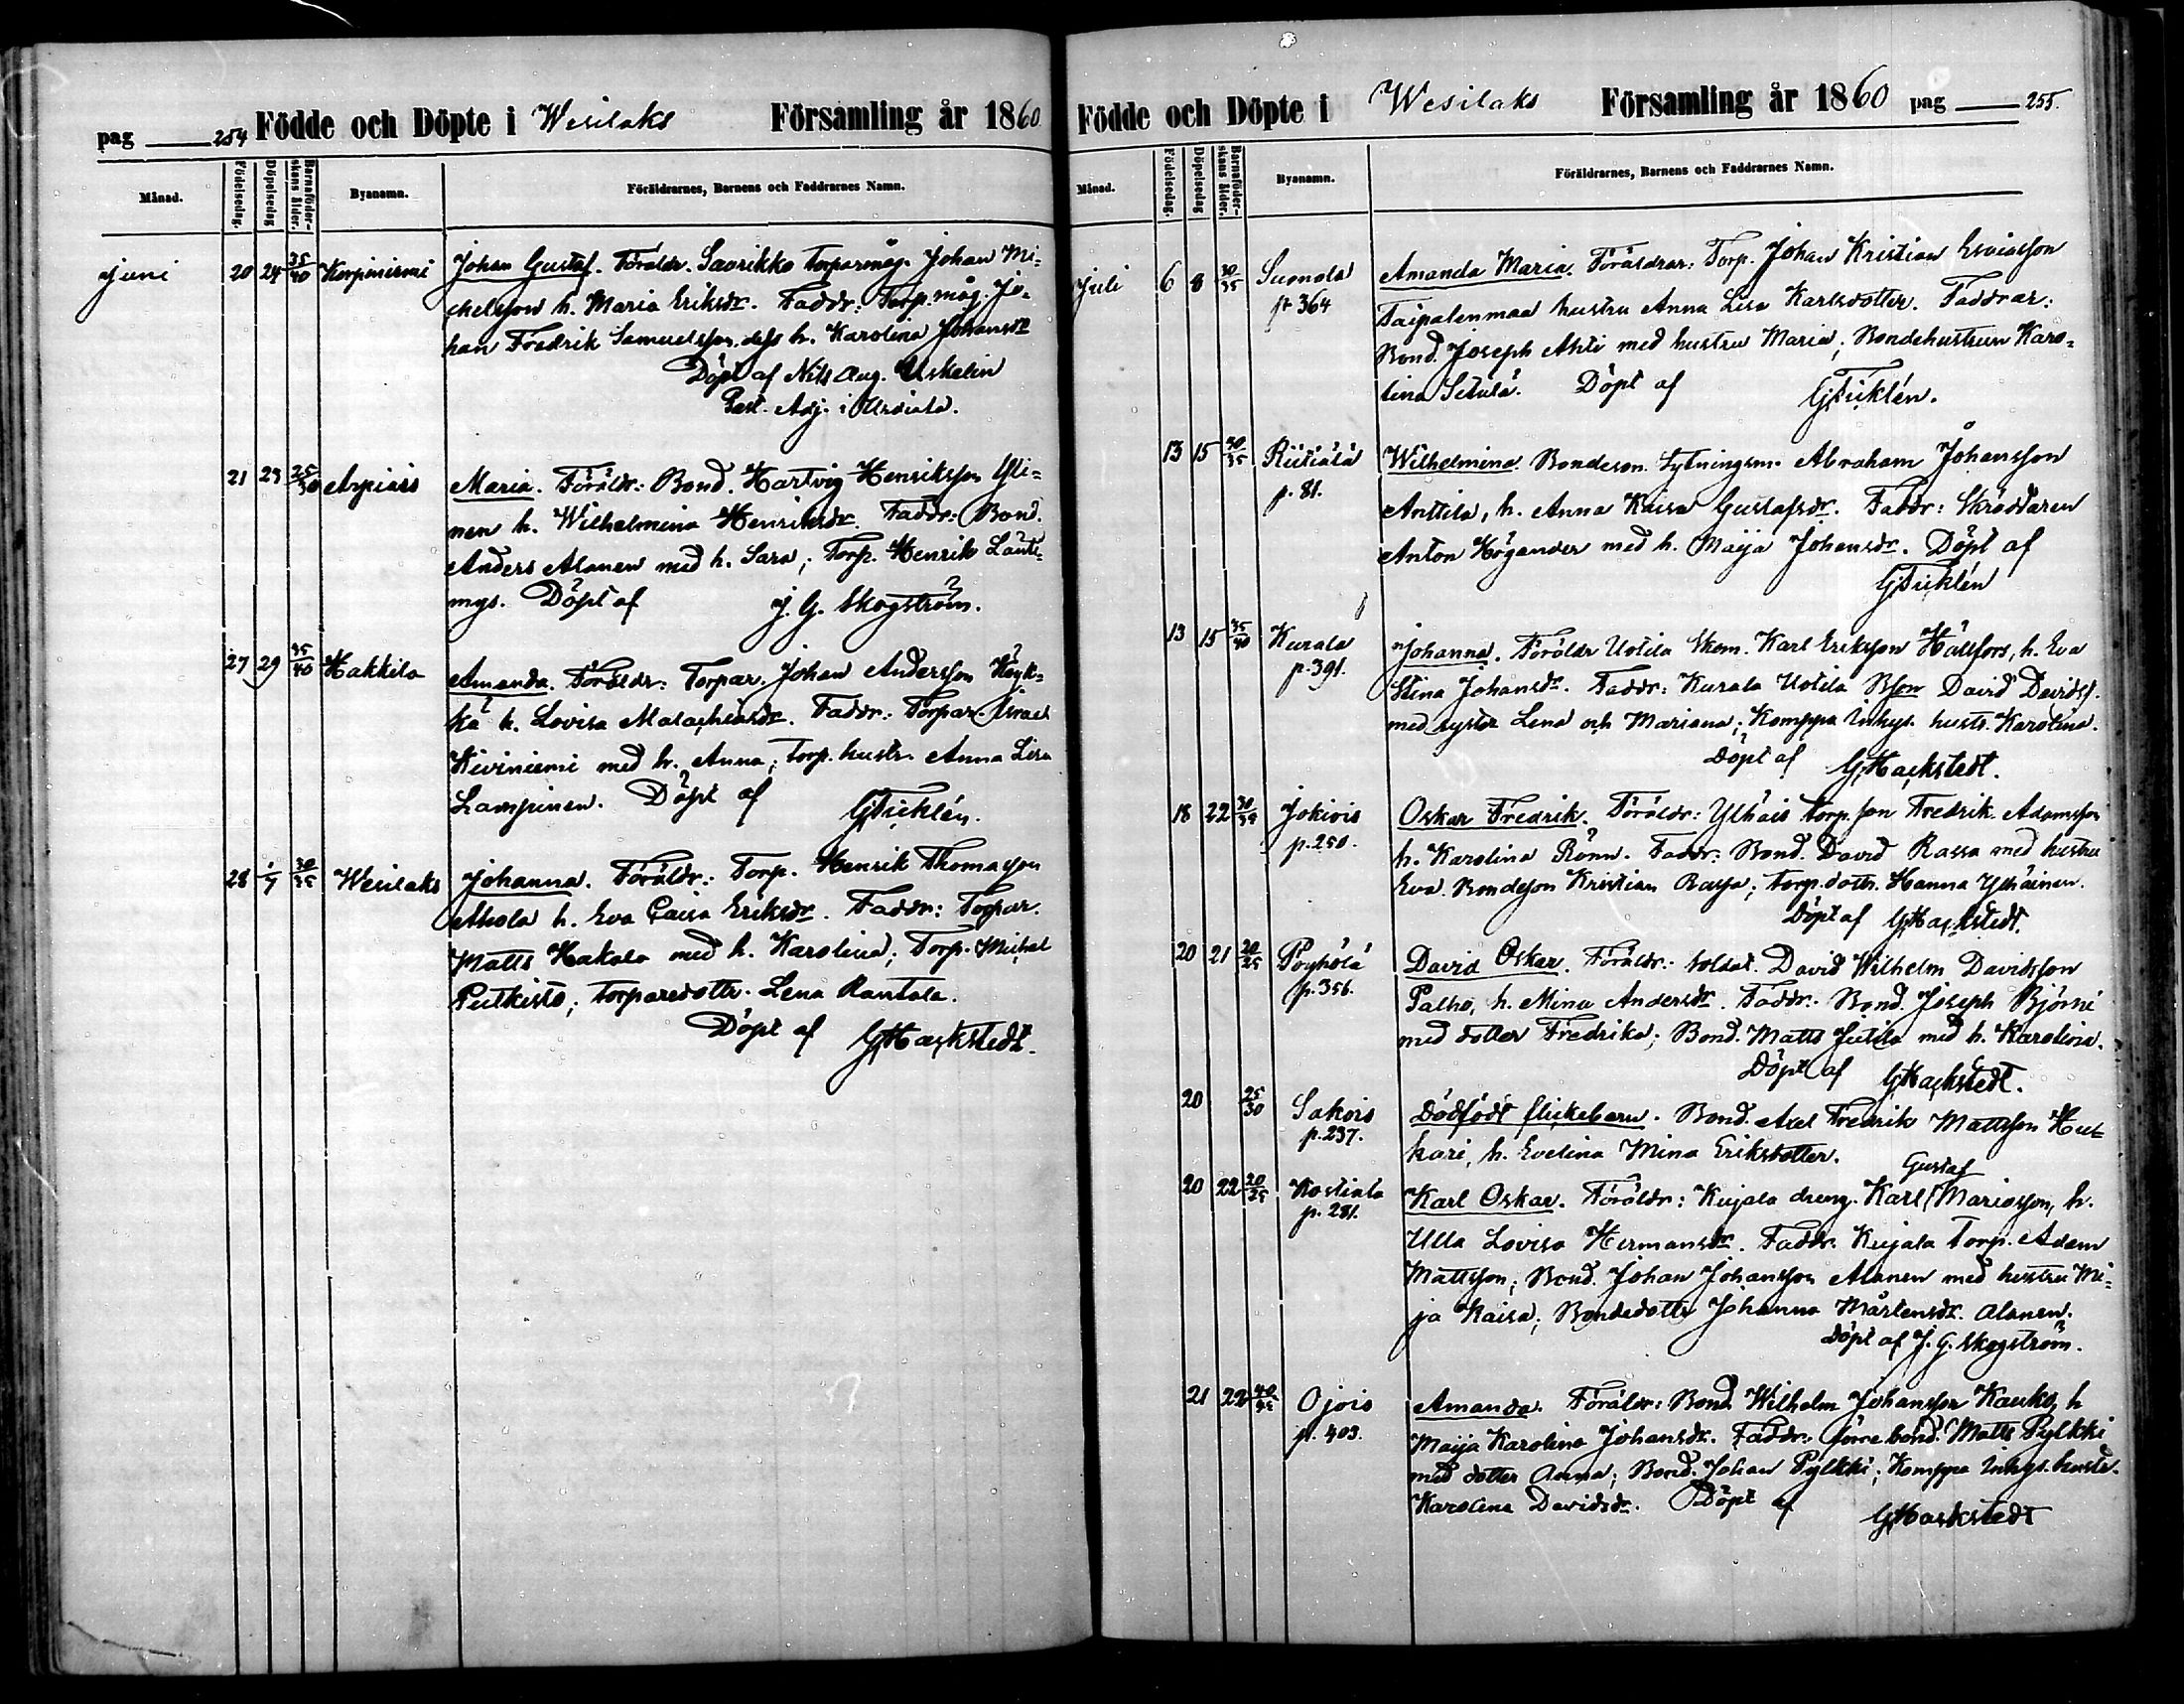 pag 254 Födde och Döpte i Wesilaks Församling år 1860
Månad. Födelsedag. Döpelsedag Barnaföderskans ålder. Byanamn. Föräldrarnes, Barnens och Faddrarnes Namn.
Juni 20 24 35/40 Korpiniemi Johan Gustaf. Föräldr. Savikko torparmåg Johan Mi-
chelsson h. Maria Eriksdr. Faddr: Torp.måg. Jo-
han Fredrik Samuelsson, dess h. Karolina Johansdr
Döpt af Nils Aug. Uskelin
Past. Adj. i Urdiala.
21 23 25/30 Arpiais Maria. Föräldr: Bond. Hartvig Henriksson Yli-
nen h. Wilhelmina Henriksdr. Faddr: Bond.
Anders Alanen med h. Sara; Torp. Henrik
Döpt af J. G. Skogström.
27 29 35/40 Hakkila Amanda. Föräldr: Torpar. Johan Andersson Köyk-
kä h. Lovisa Malachiasdr. Faddr: Torpar. Israel
Kiviniemi med h. Anna; Torp. hustr. Anna Lisa
Lampinen. Döpt af GFicklén.
28 1/7 30/35 Wesilaks Johanna. Föräldr: Torp. Henrik Thomasson
Ahola h. Eva Caisa Eriksdr. Faddr: Torpar.
Matts Hakala med h. Karolina; Torp. Michel
Putkisto; torparedottr. Lena Rantala.
Döpt af GHackstedt.
Födde och Döpte i Wesilaks Församling år 1860 pag 255.
Månad. Födelsedag. Döpelsedag Barnaföderskans ålder. Byanamn. Föräldrarnes, Barnens och Faddrarnes Namn.
Juli 6 8 30/35 Suomela Amanda Maria. Föräldrar: Torp. Johan Kristian Esaiasson
p 364 Taipalenmaa hustru Anna Lisa Karlsdotter. Faddrar:
Bond. Joseph Ahti med hustru Maria; Bondehustrun Karo-
lina Setälä. Döpt af GFicklén.
13 15 30/35 Riitiälä Wilhelmina. Bondeson Lytningsm. Abraham Johansson
p. 81. Anttila, h. Anna Kaisa Gustafsdr. Faddr: Skräddaren
Anton Högander med h. Maija Johansdr. Döpt af
GFicklén
13 15 35/40 Kurala Johanna. Föräldr Uotila Skom. Karl Eriksson Hällfors, h. Eva
p. 391. Stina Johansdr. Faddr: Kurala Uotila Bson David Davidss.
med syster Lena och Mariana; Komppa Inhys. hustr. Karolina.
Döpt af GHackstedt.
18 22 30/35 Jokiois Oskar Fredrik. Föräldr: Ylhäis torp. son Fredrik Adamsson
p. 250. h. Karolina Rönn. Faddr: Bond. David Rassa med hustru
Eva. Bondeson Kristian Rassa; torp. dottr. Hanna Ylhäinen.
Döpt af GHackstedt.
20 21 20/25 Pöyhölä David Oskar. Föräldr: Soldat. David Wilhelm Davidsson
p. 356. Palho, h. Mina Andersdr. Faddr: Bond. Joseph Björni
med dotter Fredrika; Bond. Matts Jutila med h. Karolina.
Döpt af GHackstedt.
20 25/30 Sakois Dödfödt flickebarn. Bond. Axel Fredrik Mattsson Huh-
p. 237. kari, h. Evelina Mina Eriksdotter.
Gustaf
20 22 20/25 Kostiala Karl Oskar. Föräldr: Kujala dreng. Karl Mariasson, h.
p. 281. Ulla Lovisa Hermansdr. Faddr. Kujala Torp. Adam
Mattsson; Bond. Johan Johansson Alanen med hustru Ma-
ja Kaisa; Bondedottr Johanna Mårtensdr. Alanen.
Döpt af J. G. Skogström.
21 22 40/45 Ojois Amanda. Föräldr: Bond Wilhelm Johansson Kauko, h
p. 403. Maija Karolina Johansdr. Faddr: förre bond. Matts Pylkki
med dotter Anna; Bond. Johan Pylkki; Komppa Inhys. hustr.
Karolina Davidsdr. Döpt af GHackstedt